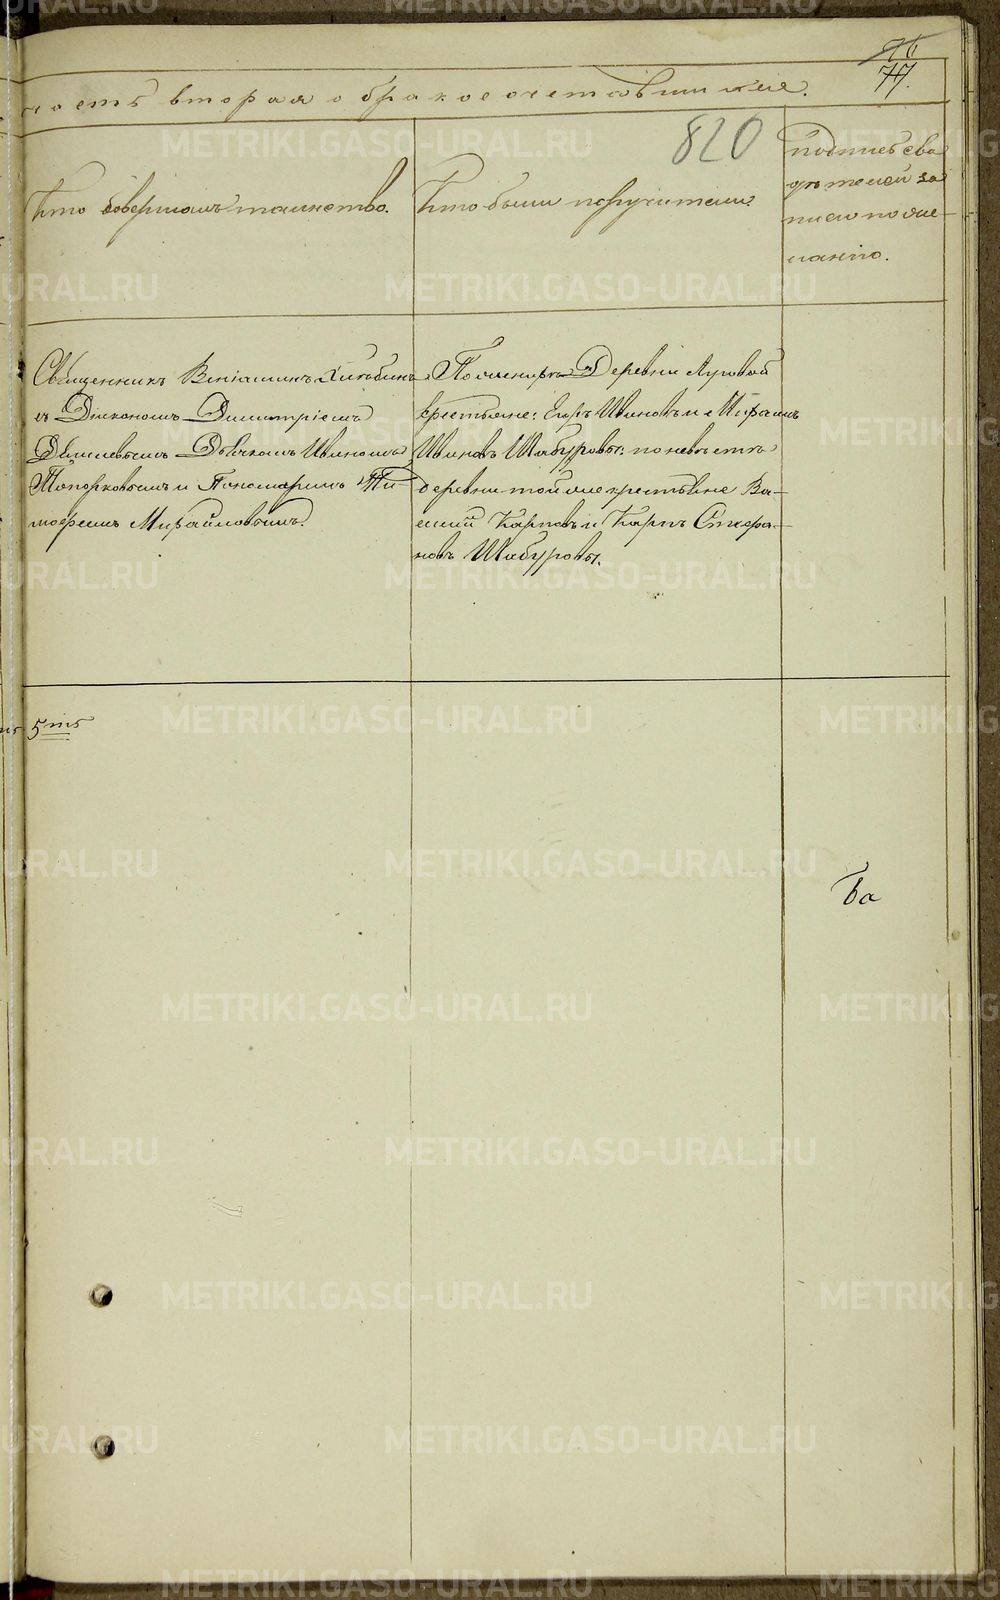 76
77.
часть вторая о бракосочетавшихся.
820
Кто совершалъ таинство.
Кто были поручители.
подпись сви
дѣтелей за
писи по же-
ланію.
Священникъ Веніаминъ
съ Діакономъ Димитріемъ
Дьячкомъ Иваномъ
Топорковымъ и Пономаремъ Ти-
мофеемъ Михайловымъ.
По женихѣ Деревни Луговой
крестьяне: Егоръ Ивановъ и
Ивановъ Шабуровы: по невѣстѣ
деревни той же крестьяне Ва-
силий Карповъ и Карпъ Стефа-
новъ Шабуровы.
5
ба
METRIKI.GASO-URAL.RU